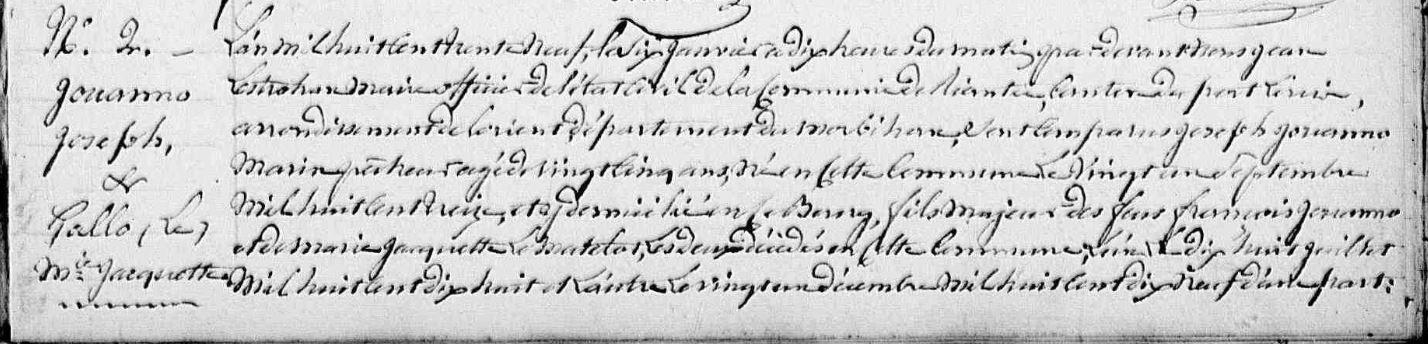 N.° 2. —
Gouanno
Joseph,
&
Gallo, (Le)
M.ie Jacquette
L'an mil huit cent trente neuf, le six Janvier à dix heures du matin, par devant Nous Jean
Lestrohan Maire officier de l'état Civil de la Commune de Riantec, Canton du port Louis,
arrondissement de Lorient, département du Morbihan, Sont Comparus Joseph Gouanno
Marin pêcheur agé de vingt Cinq ans, Né en Cette Commune Le Vingt un Septembre
Mil huit Cent treize, et y domicilié en Le Bourg, fils Majeur des feus francois Gouanno
et de Marie Jacquette Le Matelot, Les deux décédés en Cette Commune, L'un Le dix huit Juillet
Mil huit Cent dix huit et L'autre Le vingt un décembre Mil huit Cent dix Neuf d'une part: